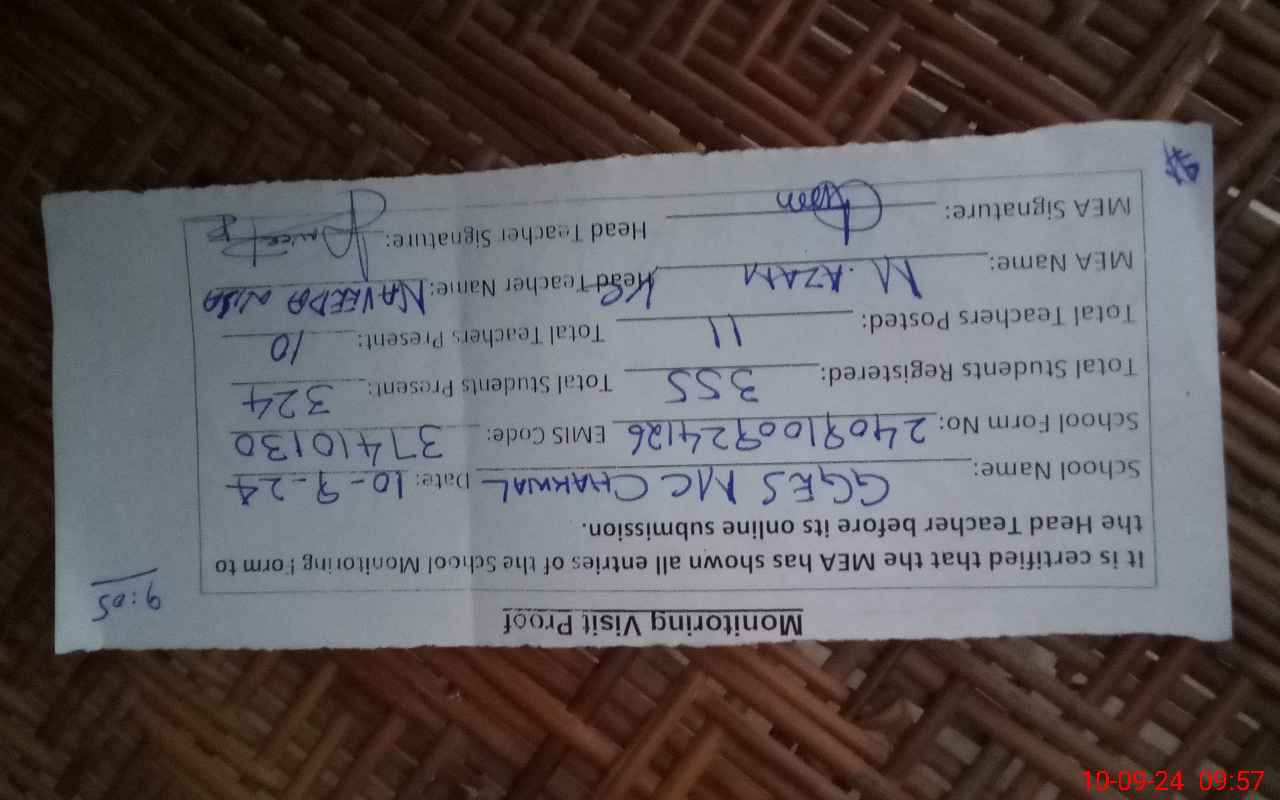 Monitoring Visit Proof
9:05
It is certified that the MEA has shown all entries of the School Monitoring Form to
the Head Teacher before its online submission.
School Name: GGES MC CHAKWAL Date: 10-9-24
School Form No: 2409100924126 EMIS Code: 37410130
Total Students Registered: 355 Total Students Present: 324
Total Teachers Posted: 11 Total Teachers Present: 10
MEA Name: M. AZAM Head Teacher Name: NAVEEDA NISA
MEA Signature: Head Teacher Signature:
10-09-24 09:57